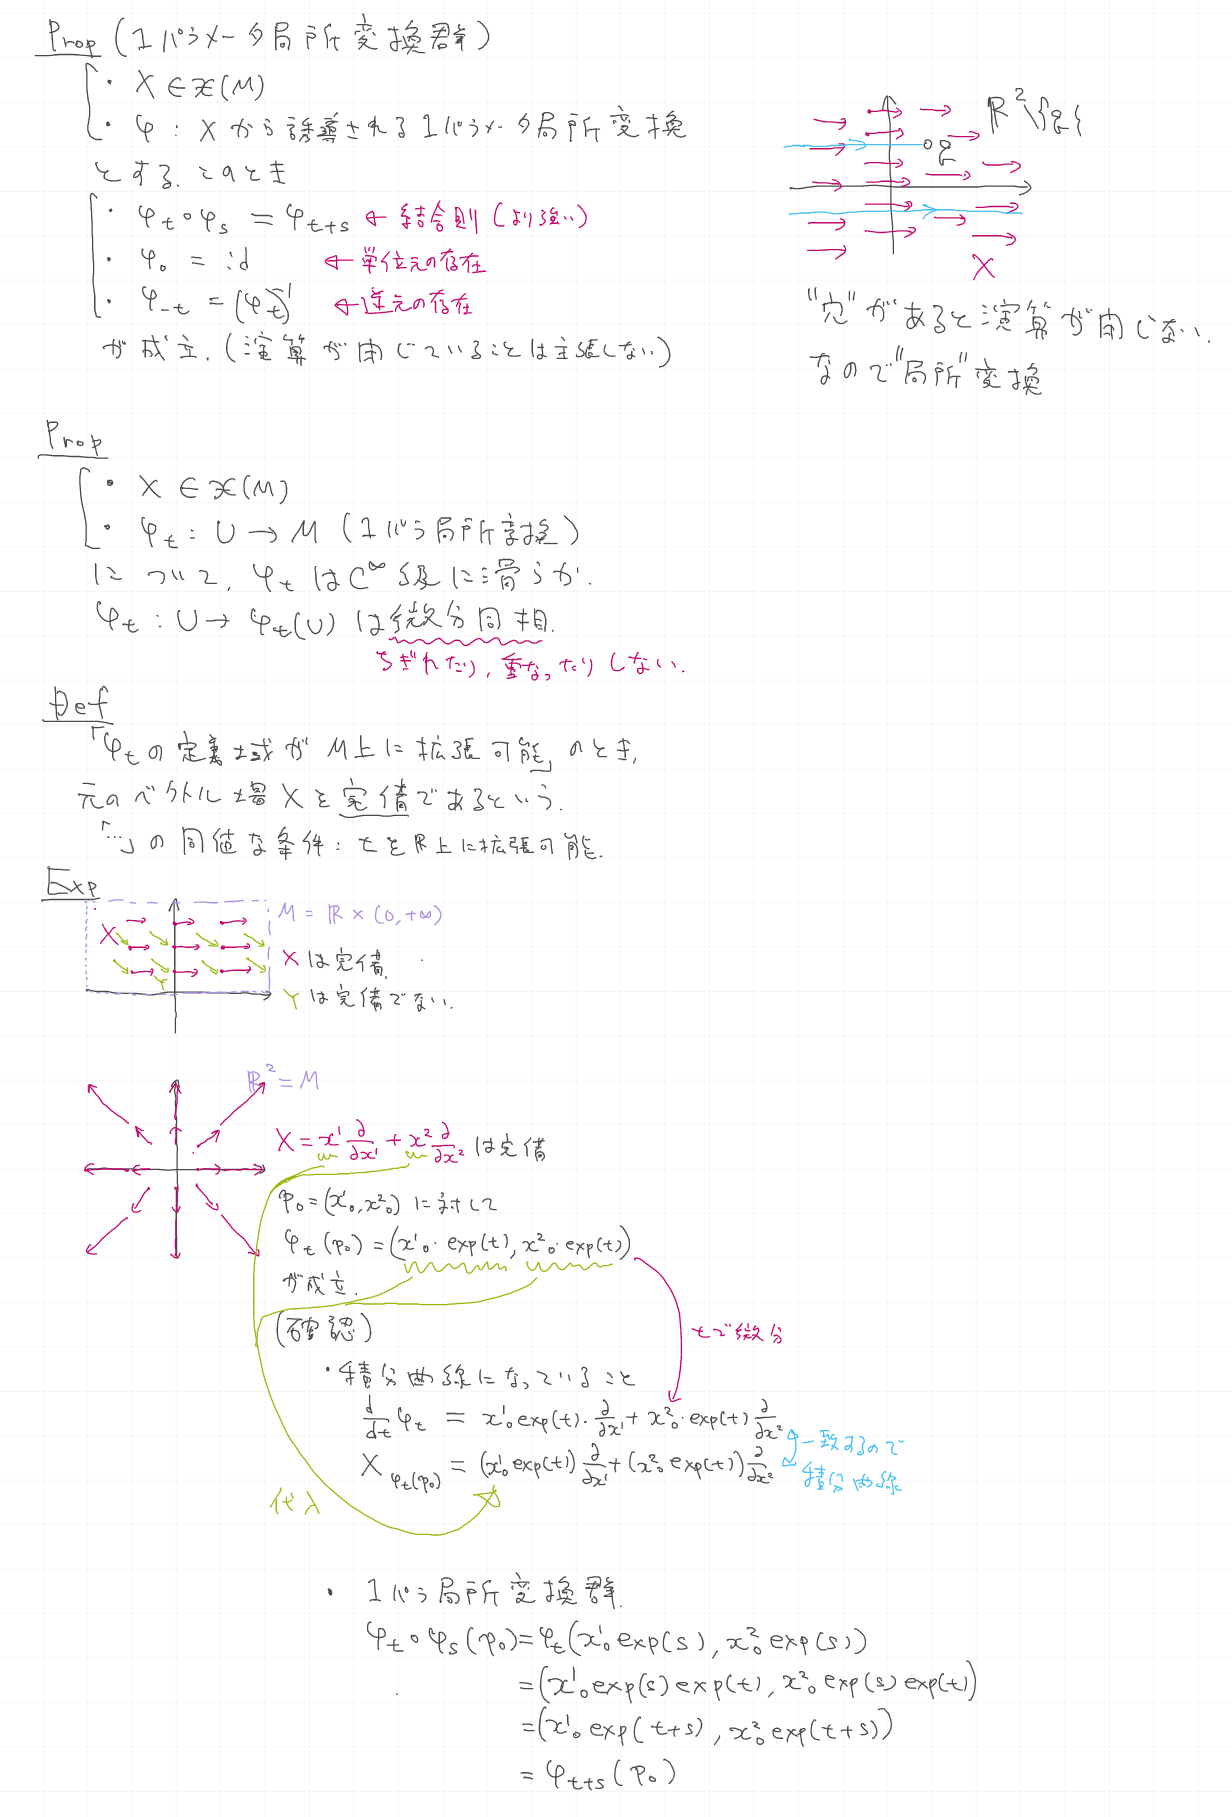 Prop (1パラメータ局所変換群)
・ X ∈ 𝔛(M)
・ φ : X から誘導される1パラメータ局所変換
とする. このとき
・ φ_t∘φ_s = φ_{t+s} ← 結合則 (より強い)
・ φ_0 = id ← 単位元の存在
・ φ_{-t} = (φ_t)^{-1} ← 逆元の存在
が成立. (演算が閉じていることは主張しない)
R^2\{q}
q
X
"穴"があると演算が閉じない.
なので"局所"変換
Prop
・ X ∈ 𝔛(M)
・ φ_t : U → M (1パラ局所変換)
について, φ_t はC^∞級に滑らか.
φ_t : U → φ_t(U) は微分同相.
ちぎれたり, 重なったりしない.
Def
「φ_t の定義域が M上に拡張可能」のとき,
元のベクトル場 X を完備であるという.
「…」の同値な条件 : t を R上に拡張可能.
Exp
X
Y
M = R × (0, +∞)
X は完備.
Y は完備でない.
R^2 = M
X = x^1 ∂/∂x^1 + x^2 ∂/∂x^2 は完備
p_0 = (x^1_0, x^2_0) に対して
φ_t(p_0) = (x^1_0・exp(t), x^2_0・exp(t))
が成立.
(確認)
tで微分
・積分曲線になっていること
d/dt φ_t = x^1_0 exp(t)・∂/∂x^1 + x^2_0・exp(t) ∂/∂x^2
X_{φ_t(p_0)} = (x^1_0 exp(t)) ∂/∂x^1 + (x^2_0 exp(t)) ∂/∂x^2
一致するので
積分曲線
代入
・ 1パラ局所変換群.
φ_t∘φ_s(p_0) = φ_t(x^1_0 exp(s), x^2_0 exp(s))
= (x^1_0 exp(s) exp(t), x^2_0 exp(s) exp(t))
= (x^1_0 exp(t+s), x^2_0 exp(t+s))
= φ_{t+s}(p_0)